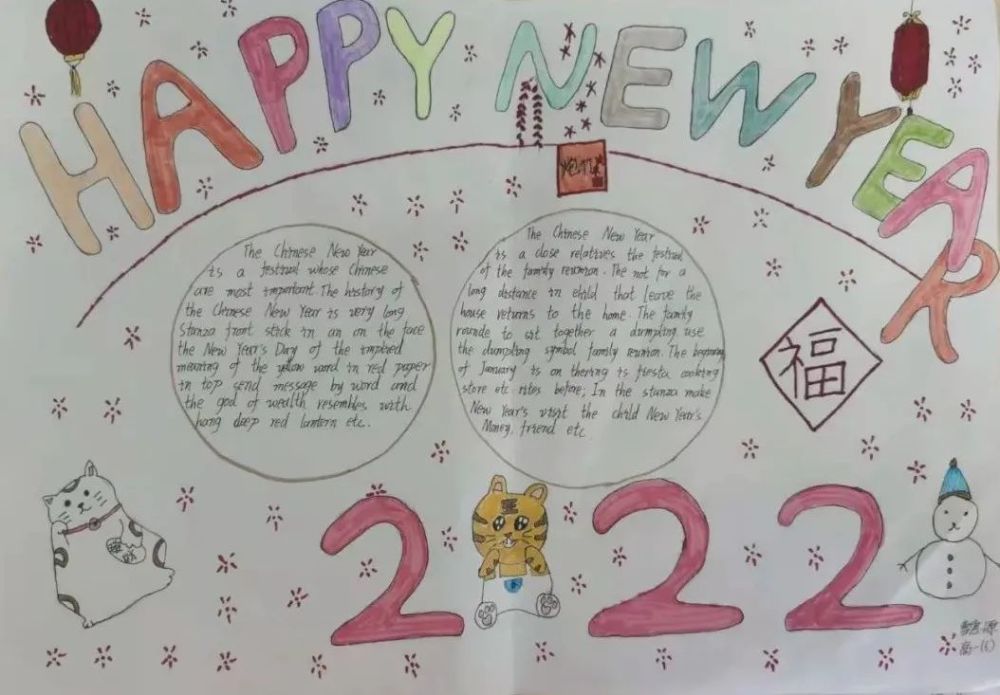 HAPPY NEW YEAR
The Chinese New Year
is a festival whose Chinese
are most important. The history of
the Chinese New Year is very long
Stanza front stick in an on the face
the New Year's Day of the implied
meaning of the yellow word in red paper
in top send message by word and
the god of wealth resembles with
hang diep red lantern etc.
The Chinese New Year
is a close relatives the festival
of the family reunion. The not for a
long distance in child that leave the
house returns to the home. The family
rounde to sit together a dumpling use
the dumpling symbol family reunion. The beginning
of January is on thering is fiesta, cooking
store etc rites before; In the stanza make
New Year's visit the child New Year's
Money, friend etc.
福
2022
高一(6)